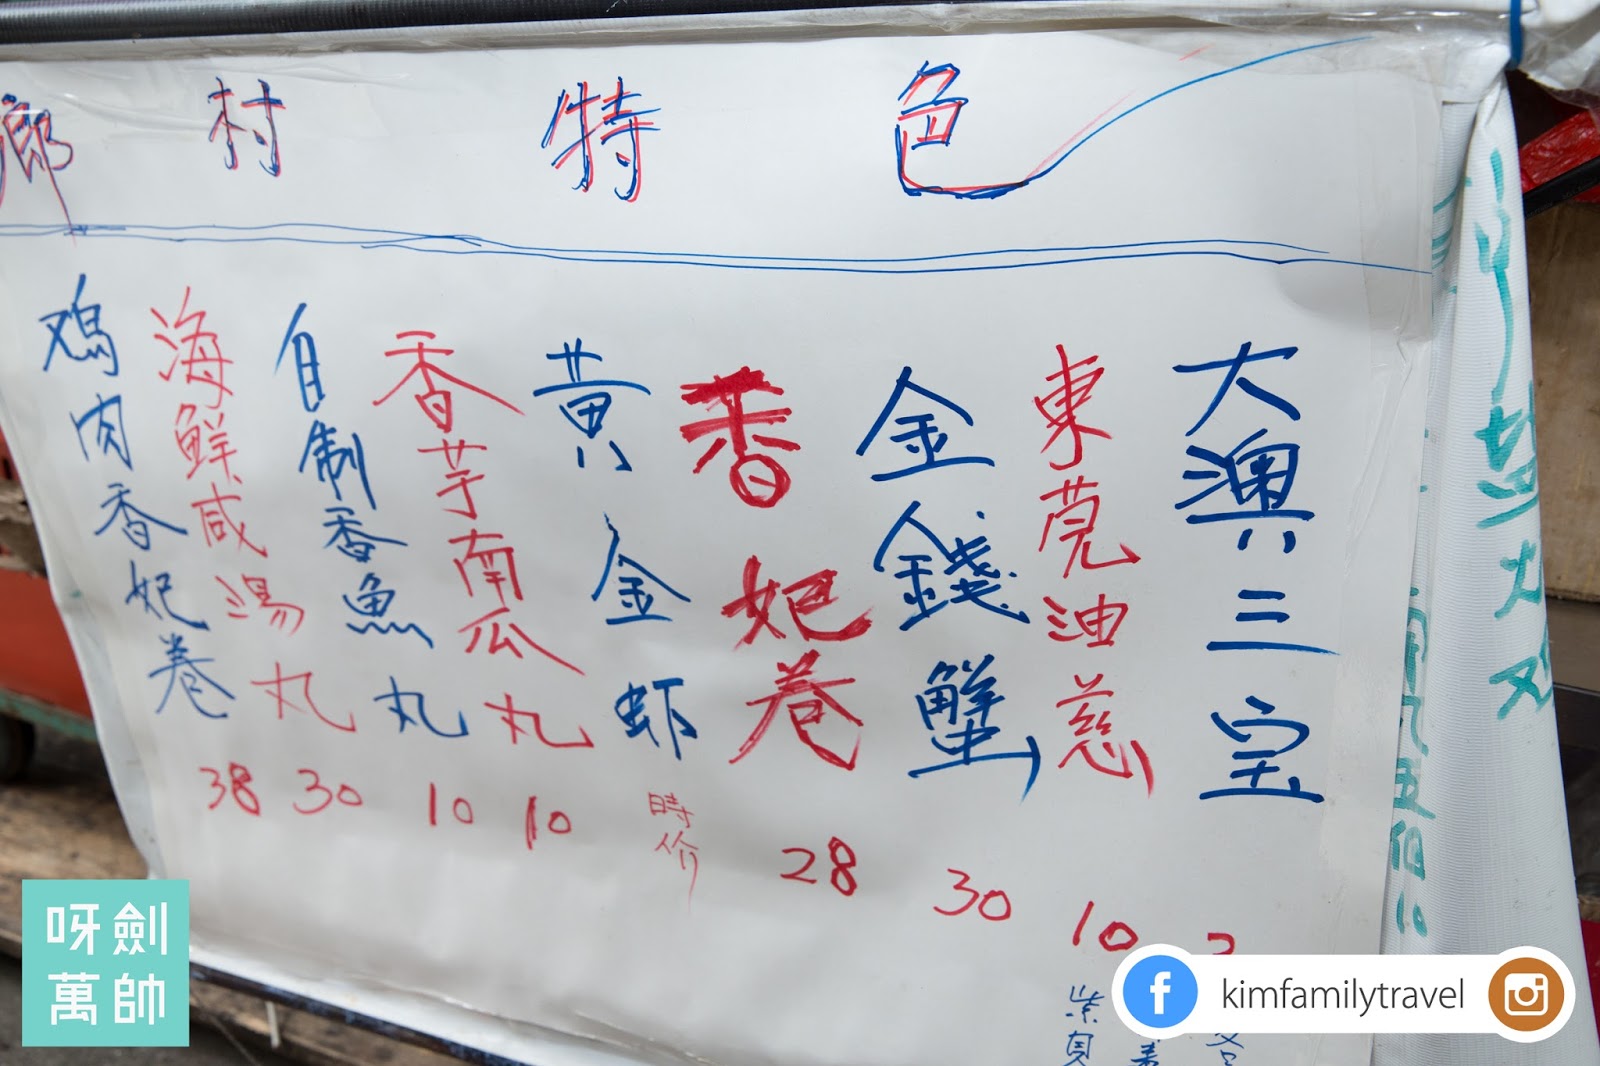 鄉村特色
大澳三宝
東莞油慈
10
金錢蟹
30
香妃卷
28
黃金虾
時价
香芋南瓜丸
10
自制香魚丸
10
海鲜咸湯丸
30
鸡肉香妃卷
38
呀劍
萬帥
kimfamilytravel